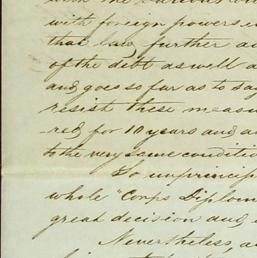 with foreign powers
that law, further
of the debt as well a
and goes so far as to say
resist these measu
red, for 10 years and a
to the very same conditio
So unprincip
whole "Corps Diplom
great decision and
Nevertheless, a